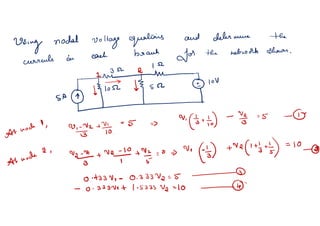 Using nodal voltage equations and determine the
currents in each branch for the network shown.
1 3Ω 2 1Ω
5A 10Ω 5Ω 10V
At node 1, (V1-V2)/3 + V1/10 = 5 ⇒ V1(1/3 + 1/10) - V2/3 = 5 —①
At node 2, (V2-V1)/3 + (V2-10)/1 + V2/5 = 0 ⇒ V1(-1/3) + V2(1+1/3+1/5) = 10 —②
0.433V1 - 0.333V2 = 5 —③
- 0.333V1 + 1.5333V2 = 10 —④